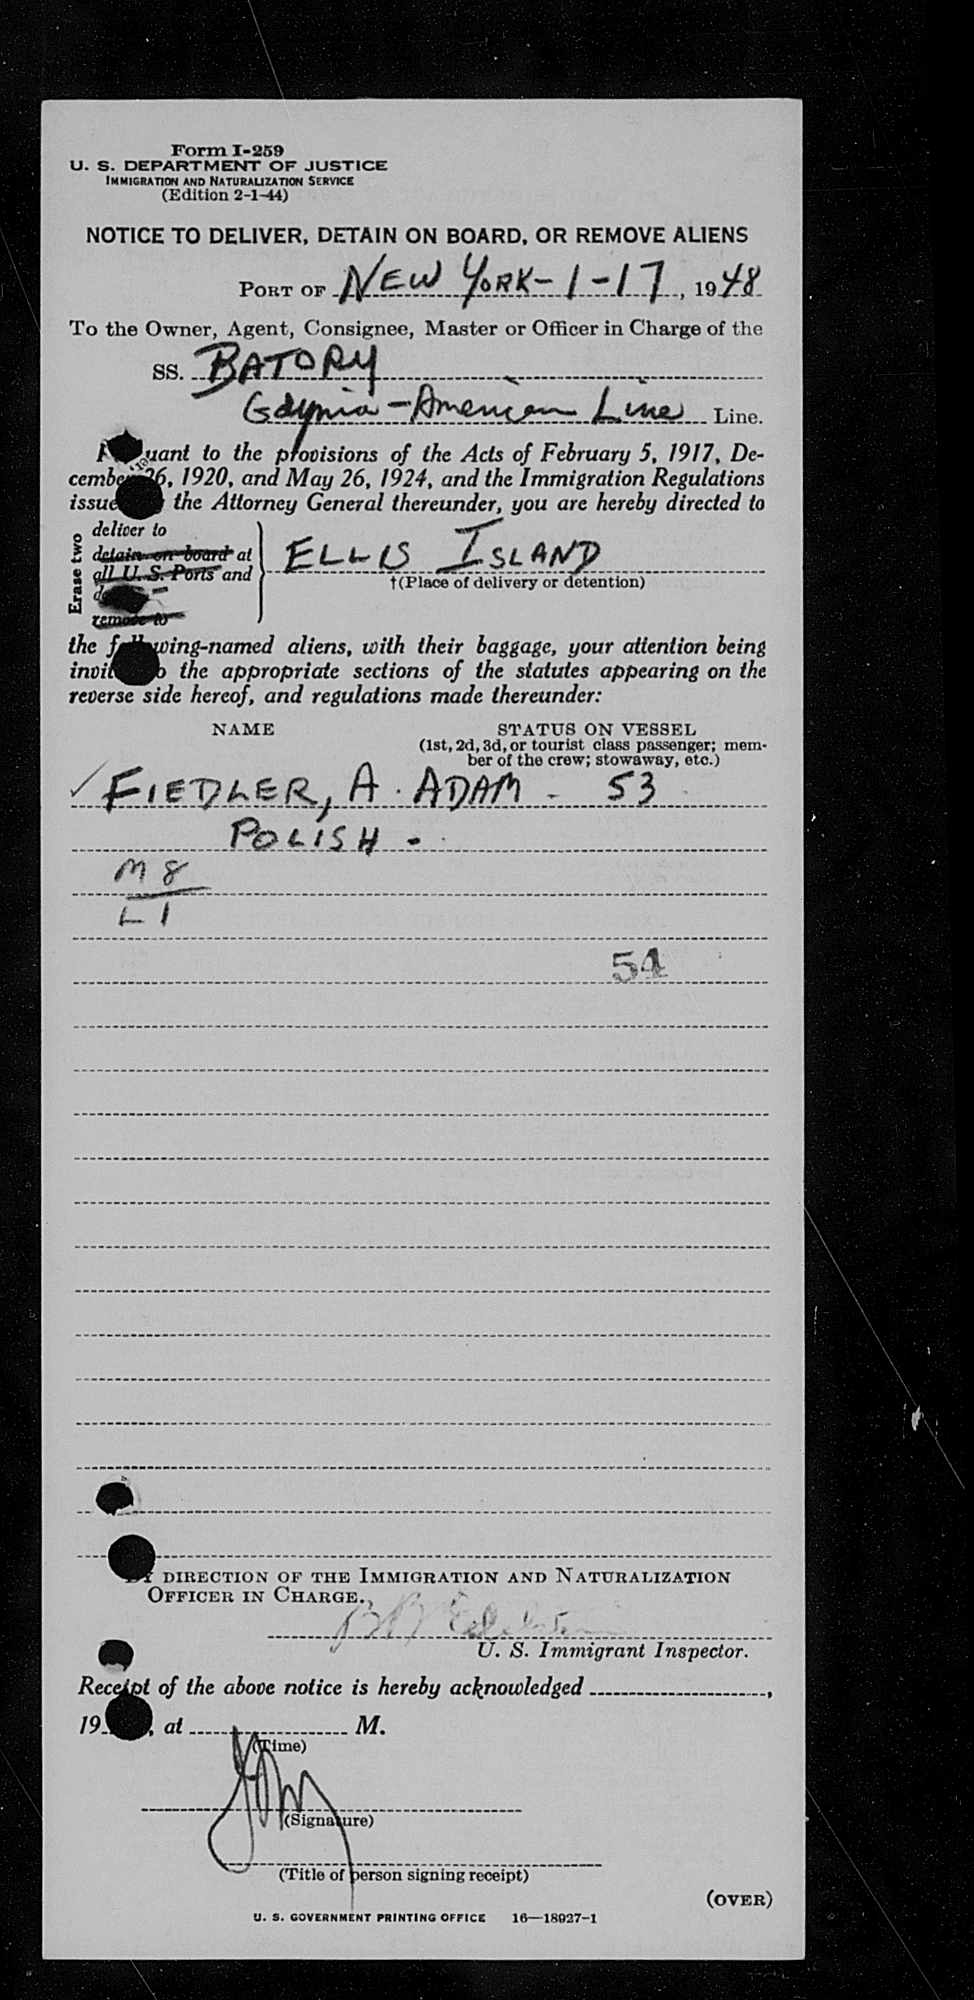 Form I-259
U. S. DEPARTMENT OF JUSTICE
IMMIGRATION AND NATURALIZATION SERVICE
(Edition 2-1-44)
NOTICE TO DELIVER, DETAIN ON BOARD, OR REMOVE ALIENS
PORT OF NEW YORK - 1 - 17, 1948
To the Owner, Agent, Consignee, Master or Officer in Charge of the
SS. BATORY
Gdynia - American Line Line.
uant to the provisions of the Acts of February 5, 1917, De-
cember 26, 1920, and May 26, 1924, and the Immigration Regulations
issue the Attorney General thereunder, you are hereby directed to
Erase two
deliver to
detain on board at
all U. S. Ports and
remove to
ELLIS ISLAND
†(Place of delivery or detention)
the following-named aliens, with their baggage, your attention being
invit o the appropriate sections of the statutes appearing on the
reverse side hereof, and regulations made thereunder:
NAME STATUS ON VESSEL
(1st, 2d, 3d, or tourist class passenger; mem-
ber of the crew; stowaway, etc.)
✓ FIEDLER, A. ADAM - 53
POLISH -
M 8
L 1
54
BY DIRECTION OF THE IMMIGRATION AND NATURALIZATION
OFFICER IN CHARGE.
U. S. Immigrant Inspector.
Receipt of the above notice is hereby acknowledged ,
19 , at M.
(Time)
(Signature)
(Title of person signing receipt)
(OVER)
U. S. GOVERNMENT PRINTING OFFICE 16—18927-1